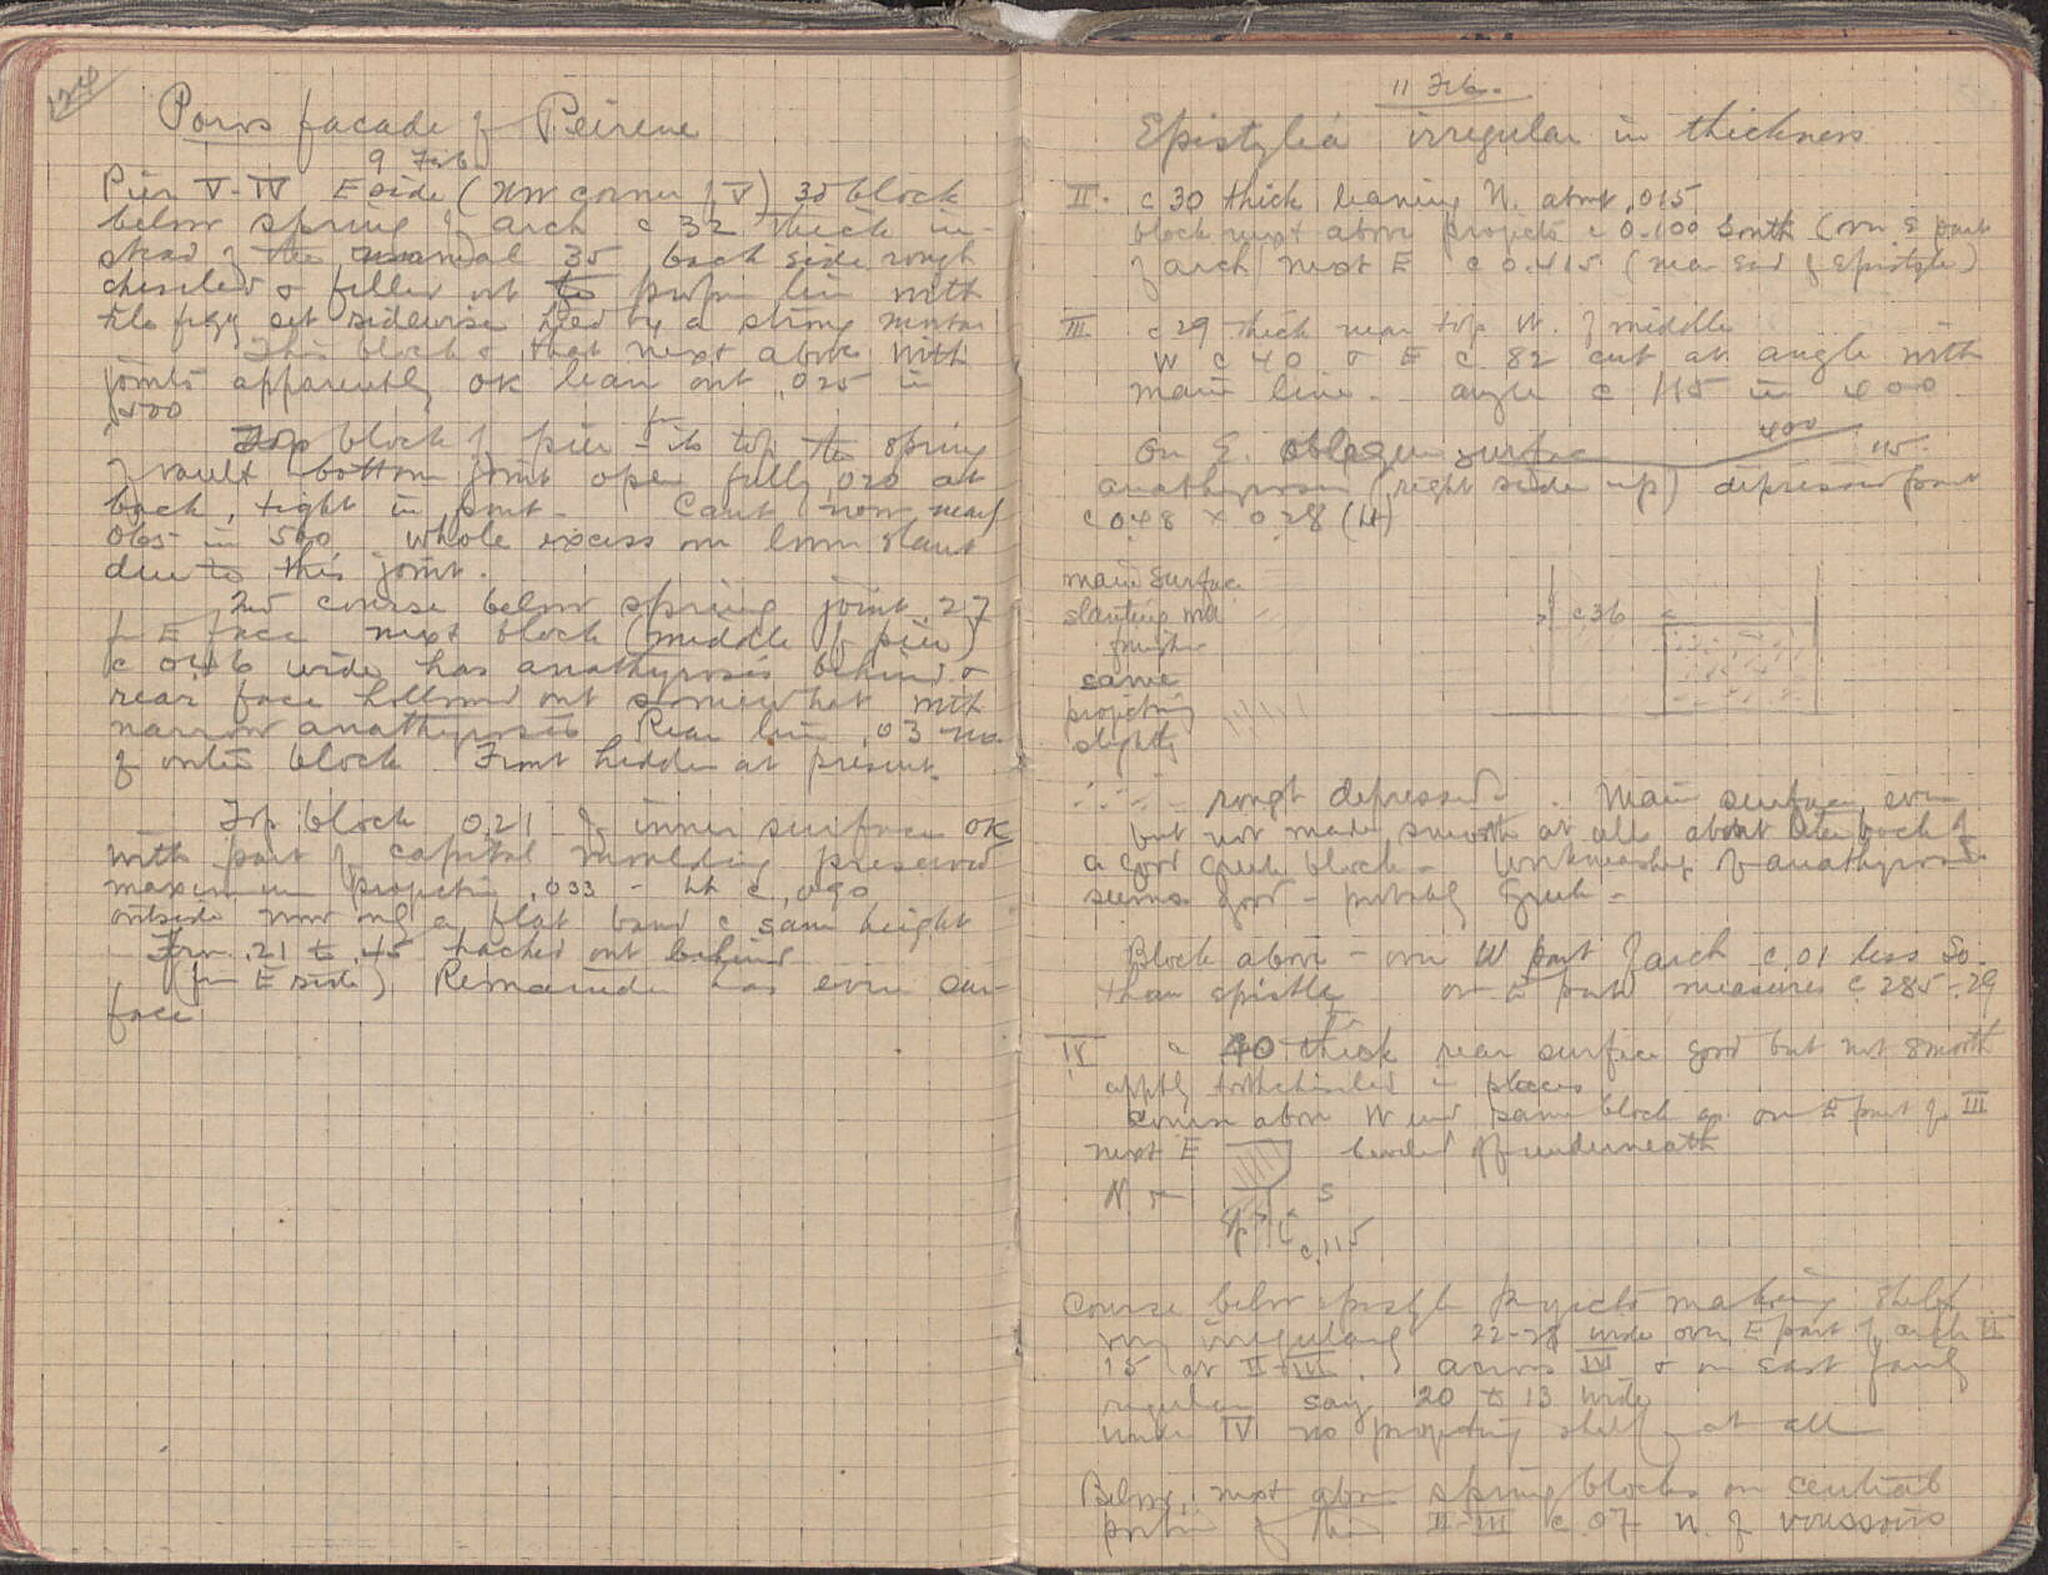 124
Poros facade of Peirene
9 Feb.
Pier V-IV E side (NW corner of V) 3d block
below spring of arch c 32 thick in-
stead of the normal 35 back side rough
chiseled & filled out to proper line with
tile set sidewise held by a strong mortar
This block & that next above with
joints apparently OK lean out .025 in
.500
Top block of pier - its top the spring
of vault bottom joint open fully .020 at
back, tight in front - Cant now nearly
065 in 500 whole excess on lower slant
due to this joint.
2nd course below spring joint .27
fr E face next block (middle of pier)
c 0.46 wide has anathyrosis behind &
rear face hollowed out somewhat with
narrow anathyrosis Rear line .03
of outer block Front hidden at present.
Top block 0.21 of inner surface OK
with part of capital moulding preserved
maximum projection .033 - ht c .090
outside now only a flat band c same height
From .21 to .45 hacked out behind
(fr E side) Remainder has even sur-
face
11 Feb.
Epistylia irregular in thickness
II. c 30 thick leaning N. about .015
block next above projects c 0.100 South (over E part
of arch next E c 0.415 (near End of Epistyle)
III c 29 thick near top W. of middle
W c 40 & E c .82 cut at angle with
main line - angle c 115 in 400
400
On E. oblique surface 115
anathyrosis (right side up) depressed part
c 0.48 x 0.28 (ht)
main surface
slanting
c 36
same
projecting
slightly
rough depressed. Main surface even
but not made smooth at all about like back of
a good Greek block - Workmanship of anathyrosis
seems good - probably Greek -
Block above - over W part of arch c .01 less So.
than epistyle over E part measures c 285-.29
IV c 40 thick rear surface good but not smooth
apptly toothchiseled in places
Course above W end same block as on E part of III
next E beveled off underneath
N S
Ep
c .115
Course below epistyle projects making shelf
very irregularly 22-28 wide over E part of arch II
15 at II-III, across IV & on east fairly
regular say 20 to 13 wide
under IV no projecting shelf at all
Below, next above spring blocks on central
portion of II-III c .07 N. of voussoirs